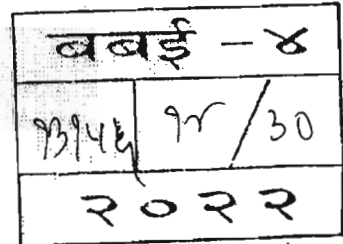 बबई - ४
१३१५६ १४/30
२०२२